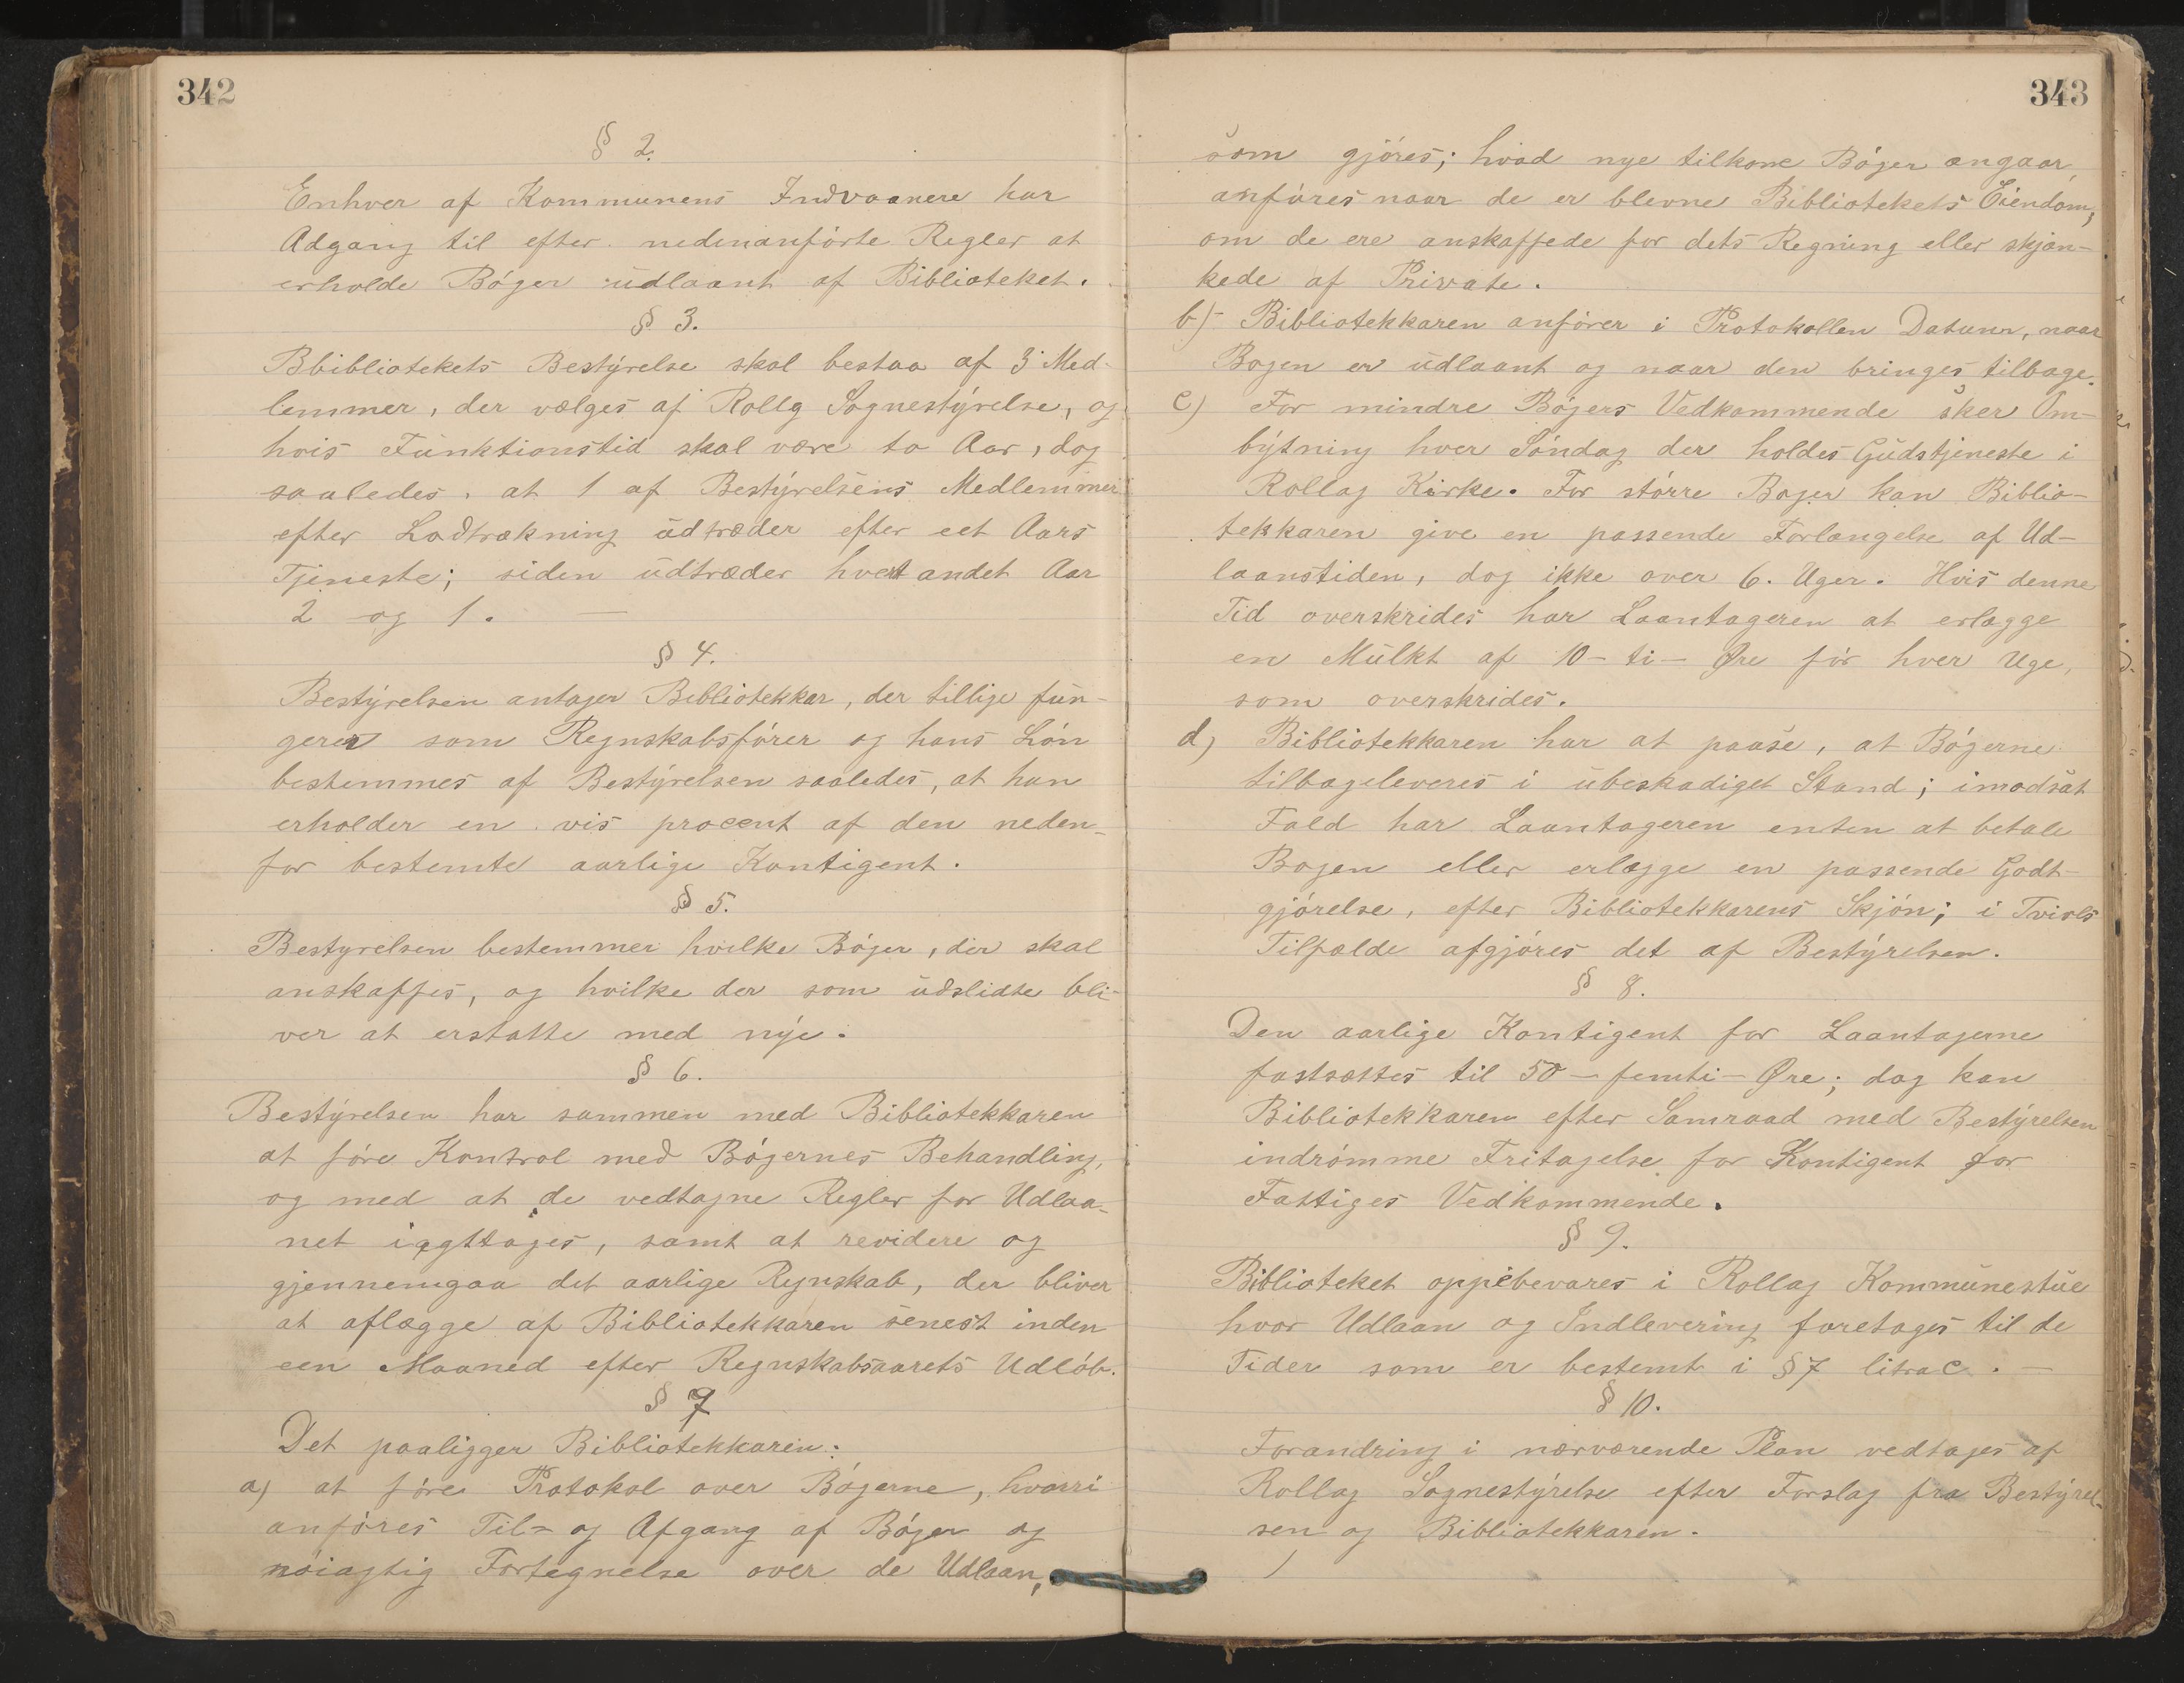 342
§ 2.
Enhver af Kommunens Indvaanere har
Adgang til efter nedenanförte Regler at
erholde Böger udlaant af Biblioteket.
§ 3.
Bbibliotekets Bestyrelse skal bestaa af 3 Med-
lemmer, der vælges af Rollg Sognestyrelse, og
hvis Funktionstid skal være to Aar, dog
saaledes, at 1 af Bestyrelsens Medlemmer
efter Lodtrækning udtræder efter eet Aars
Tjeneste; siden udtræder hvert andet Aar
2 og 1. —
§ 4.
Bestyrelsen antager Bibliotekkar, der tillige fun-
gerer som Regnskabsförer og hans Lön
bestemmes af Bestyrelsen saaledes, at han
erholder en vis procent af den neden-
for bestemte aarlige Kontigent.
§ 5.
Bestyrelsen bestemmer hvilke Böger, der skal
anskaffes, og hvilke der som udslidte bli-
ver at erstatte med nye.
§ 6.
Bestyrelsen har sammen med Bibliotekkaren
at före Kontrol med Bögernes Behandling,
og med at de vedtagne Regler for Udlaa-
net iagttages, samt at revidere og
gjennemgaa det aarlige Regnskab, der bliver
at aflægge af Bibliotekkaren senest inden
een Maaned efter Regnskabsaarets Udlöb.
§ 7
Det paaligger Bibliotekkaren:
a) at före Protokol over Bögerne, hvorri
anföres Til- og Afgang af Böger og
nöiagtig Fortegnelse over de Udlaan,
343
som gjöres; hvad nye tilkome Böger angaar,
anföres naar de er blevne Bibliotekets Eiendom,
om de ere anskaffede for dets Regning eller skjæn-
kede af Private.
b) Bibliotekkaren anförer i Protokollen Datum, naar
Bogen er udlaant og naar den bringes tilbage.
c) For mindre Bögers Vedkommende sker Om-
bytning hver Söndag der holdes Gudstjeneste i
Rollag Kirke. For större Böger kan Biblio-
tekkaren give en passende Forlængelse af Ud-
laanstiden, dog ikke over 6. Uger. Hvis denne
Tid overskrides har Laantageren at erlægge
en Mulkt af 10 - ti - Øre för hver Uge,
som overskrides.
d) Bibliotekkaren har at paase, at Bögerne
tilbageleveres i ubeskadiget Stand; imodsat
Fald har Laantageren enten at betale
Bogen eller erlægge en passende Godt-
gjörelse, efter Bibliotekkarens Skjön; i Tvivls
Tilfælde afgjöres det af Bestyrelsen.
§ 8.
Den aarlige Kontigent for Laantagerne
fastsættes til 50 - femti - Øre; dog kan
Bibliotekkaren efter Samraad med Bestyrelsen
indrömme Fritagelse for Kontigent for
Fattiges Vedkommende.
§ 9.
Biblioteket oppebevares i Rollag Kommunestue
hvor Udlaan og Indlevering foretages til de
Tider som er bestemt i § 7 litra c. —
§ 10.
Forandring i nærværende Plan vedtages af
Rollag Sognestyrelse efter Forslag fra Bestyrel-
sen og Bibliotekkaren.